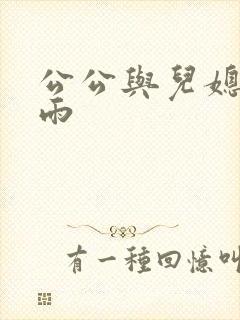 公公與兒媳
雨
有一種回憶叫